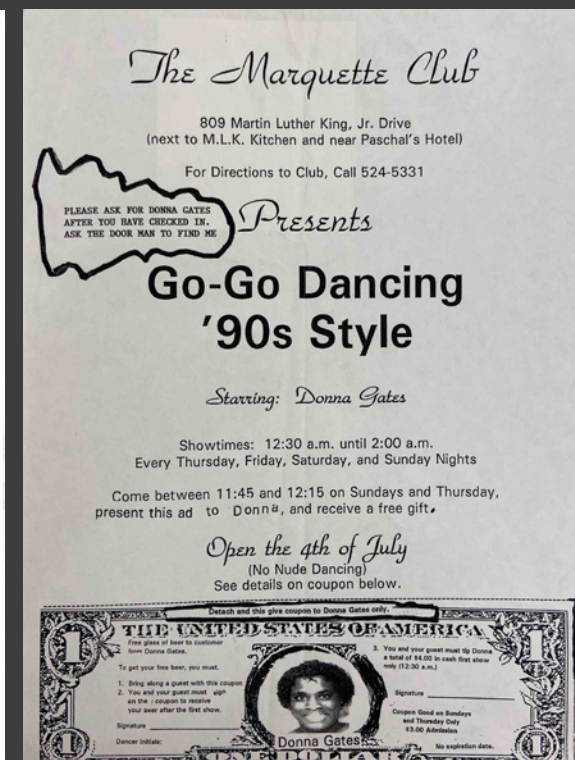 The Marquette Club
809 Martin Luther King, Jr. Drive
(next to M.L.K. Kitchen and near Paschal's Hotel)
For Directions to Club, Call 524-5331
PLEASE ASK FOR DONNA GATES
AFTER YOU HAVE CHECKED IN.
ASK THE DOOR MAN TO FIND ME
Presents
Go-Go Dancing
'90s Style
Starring: Donna Gates
Showtimes: 12:30 a.m. until 2:00 a.m.
Every Thursday, Friday, Saturday, and Sunday Nights
Come between 11:45 and 12:15 on Sundays and Thursday,
present this ad to Donna, and receive a free gift.
Open the 4th of July
(No Nude Dancing)
See details on coupon below.
Detach and this give coupon to Donna Gates only.
THE UNITED STATES OF AMERICA
1
1
Free glass of beer to customer
from Donna Gates.
To get your free beer, you must.
1. Bring along a guest with this coupon
2. You and your guest must sign
on the coupon to receive
your beer after the first show.
Signature
Dancer Initials:
Donna Gates
3. You and your guest must tip Donna
a total of $4.00 in cash first show
only (12:30 a.m.)
Signature
Coupon Good on Sundays
and Thursday Only
$3.00 Admission
No expiration date.
1
1
ONE DOLLAR